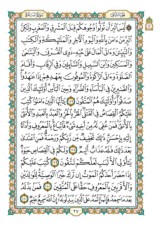 ليس البر أن تولوا وجوهكم قبل المشرق والمغرب ولكن
البر من ءامن بالله واليوم الءاخر والملئكة والكتب
والنبين وءاتى المال على حبه ذوي القربى واليتمى
والمسكين وابن السبيل والسائلين وفي الرقاب وأقام
الصلوة وءاتى الزكوة والموفون بعهدهم إذا عهدوا
والصبرين في البأساء والضراء وحين البأس أولئك
الذين صدقوا وأولئك هم المتقون ١٧٧ يأيها الذين ءامنوا
كتب عليكم القصاص في القتلى الحر بالحر والعبد بالعبد
والأنثى بالأنثى فمن عفي له من أخيه شيء فاتباع بالمعروف
وأداء إليه بإحسن ذلك تخفيف من ربكم ورحمة فمن اعتدى
بعد ذلك فله عذاب أليم ١٧٨ ولكم في القصاص حيوة
يأولي الألبب لعلكم تتقون ١٧٩ كتب عليكم
إذا حضر أحدكم الموت إن ترك خيرا الوصية للولدين
والأقربين بالمعروف حقا على المتقين ١٨٠ فمن بدله
بعدما سمعه فإنما إثمه على الذين يبدلونه إن الله سميع عليم ١٨١
٢٧